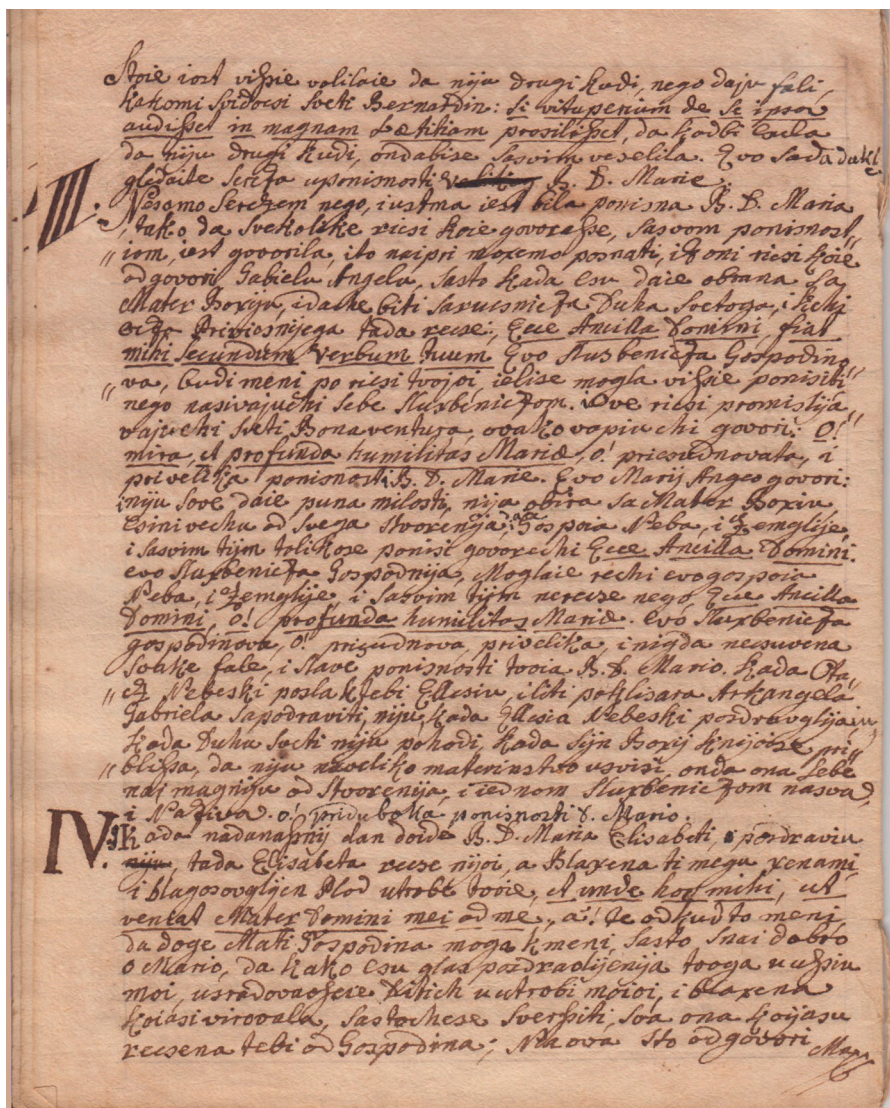 Stoie iost vihsie volilaie da niju drugi kudi, nego daju fali,
kakomi svidocsi Sveti Bernardin: Si vituperium de se ipsa
audihset in magnam Lætitiam prosilihset, da kadbi csula
da niju drugi kudi, ondabise sasvim veselila. Evo sada dakle
gledaite sercza uponisnosti B. D. Marie.
III. Nesamo Serczem nego, iustma iest bila ponisna B. D. Maria
tako da svekolike ricsi koie govorahse, sasvom ponisnost,,
,,iom, iest govorila, ito naipri moxemo posnati, iz oni ricsi koie
odgovori Gabrielu Angelu, sasto kada csu daie obrana sa
Mater Boxiju, idache biti sarucsnicza Duha Svetoga, i
Privisnijega tada recse: Ecce Ancilla Domini, fiat
mihi secundum verbum tuum Evo Sluxbenicza Gospodino,,
,,va, budi meni po ricsi tvojoi, ielise mogla vihsie ponisiti
nego nasivajuchi sebe Sluxbeniczom. Ove ricsi promislija,,
,,vajuchi Sveti Bonaventura, ovako vapiuchi govori: O!
mira, et profunda humilitas Mariæ, o! pricsudnovata, i
privelika ponisnosti B. D. Marie. Evo Marij Angeo govori:
niju sove daie puna milosti, nija obira sa Mater Boxiu,
csini vechu od svega stvorenija, Gospoia Neba, i Zemglije,
i sasvim tijm tolikose ponisi govorechi Ecce Ancilla Domini:
evo Sluxbenicza Gospodnija, Moglaie rechi evo gospoia
Neba, i Zemglije, i sasvim tijm nerecse nego Ecce Ancilla
Domini, O! profunda humilitas Mariæ. Evo Sluxbenicza
gospodinova, O! pricsudnova, privelika, i nigda necsuvena
svake fale, i slave ponisnosti tvoia B. D. Mario. Kada Ota,,
,,cz Nebeski posla ktebi Ellcsiu, iliti poklisara Arkangela
Gabriela sapodraviti, niju, kada Ellcsia Nebeski pozdravglija iu,
kada Duhu sveti niju pohodi, kada Sijn Boxij knijoise pri,,
,,blixa, da niju naveliko materinstvo usvisi, onda ona sebe
naimagniju od stvorenija, i iednom Sluxbeniczom nasva,
i Naziva. O! priduboka ponisnosti D. Mario.
IV. Kada nadanahsnij dan doide B. D. Maria Elisabeti, i pozdraviu
niju, tada Elisabeta recse nijoi, a Blaxena ti megu xenami
i blagosovglijen Plod utrobe tvoie, et unde hoc mihi, ut
veniat Mater Domini mei ad me, a! te odkud to meni
da doge Mati Gospodina moga kmeni, sasto snai dobro
o Mario, da kako csu glas pozdravlijenija tvoga u uhsiu
moi, usradovahseie Ditich u utrobi moioi, i blaxena
koiasi virovala, sastochese sverhsiti, sva ona koijasu
recsena tebi od Gospodina; Na ova sto odgovori
Mari